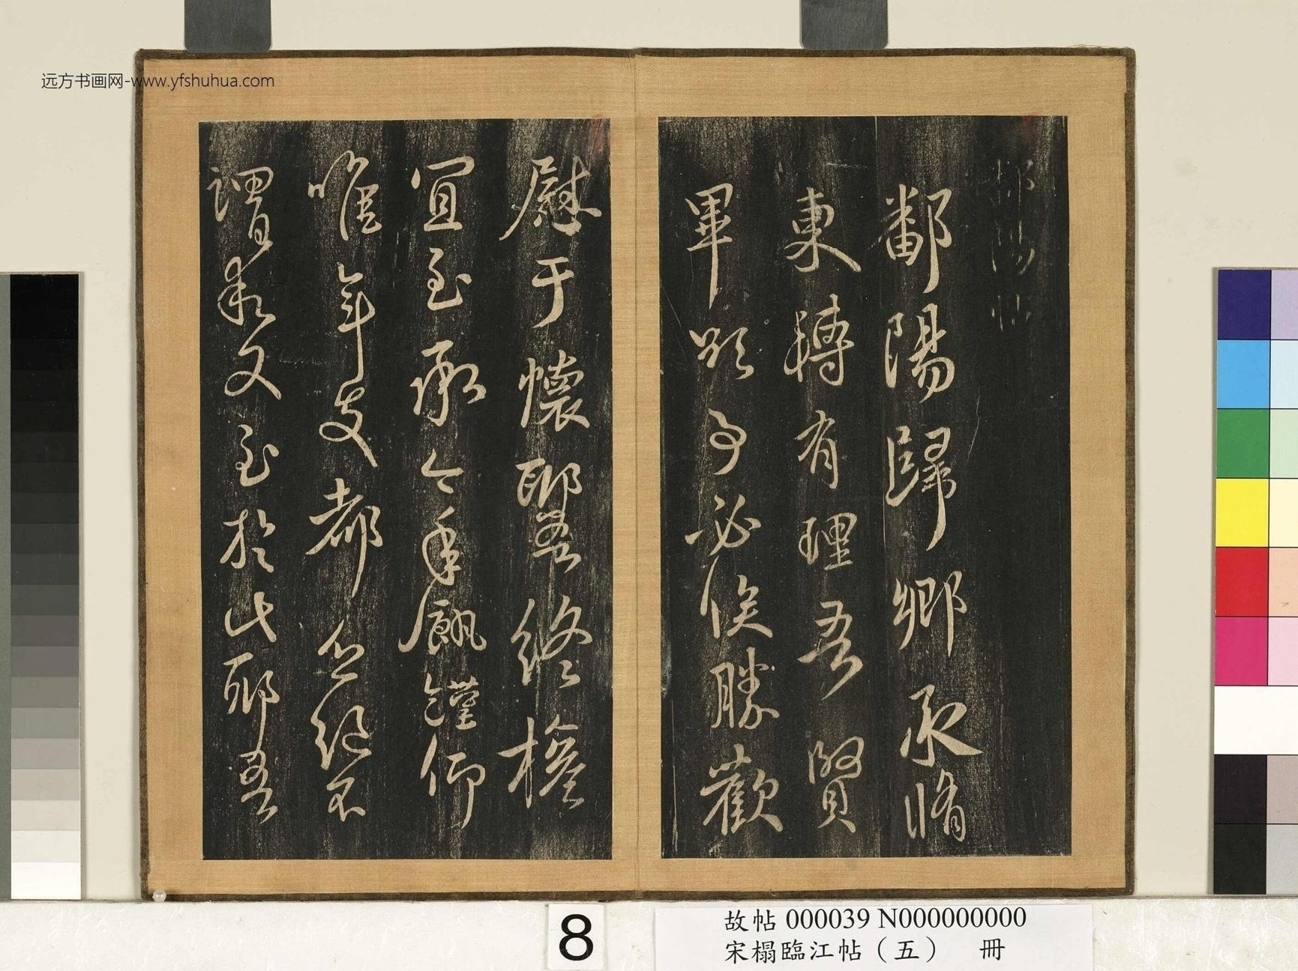 远方书画网-www.yfshuhua.com
鄱陽帖
鄱陽歸鄉承脩
東轉有理吾賢
畢欲事必俟勝歡
慰于懷耶吾終權
宜至承今年飢饉仰
唯年支都乏絕不
謂衰又至於此耶吾
8
故帖 000039 N000000000
宋榻臨江帖（五） 冊